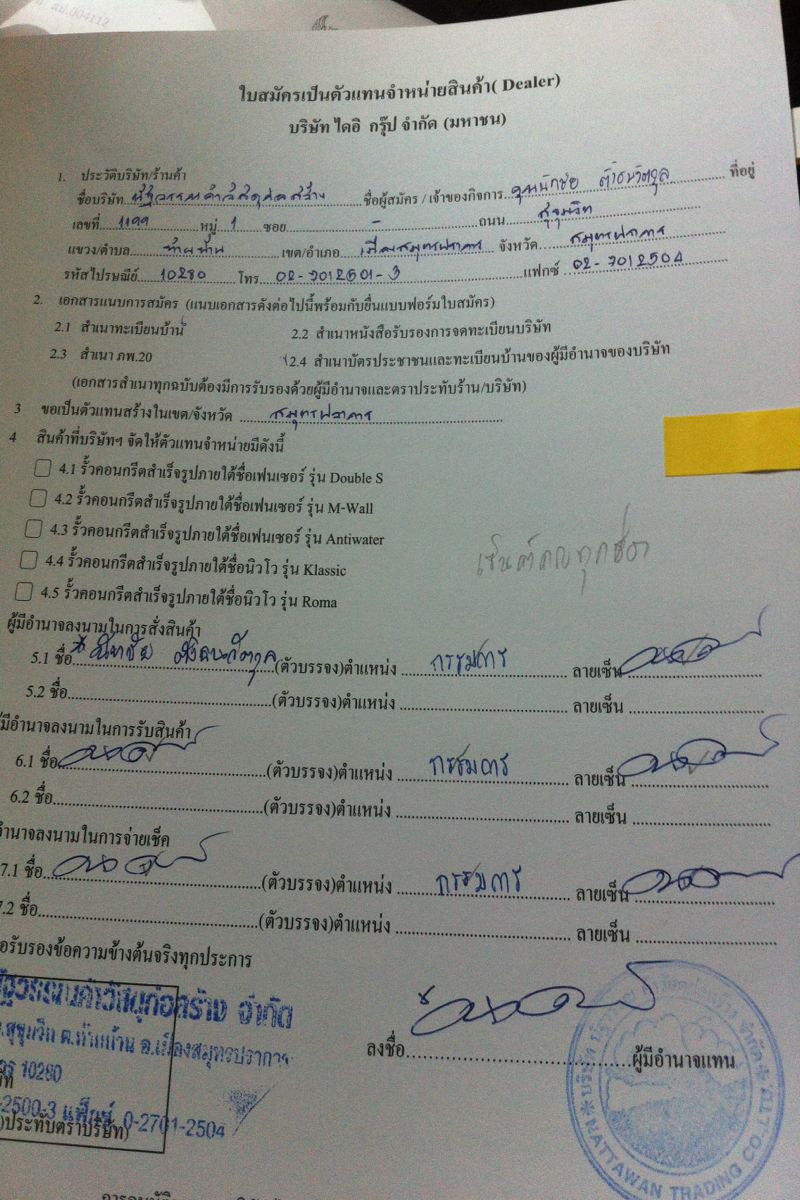 ใบสมัครเป็นตัวแทนจำหน่ายสินค้า( Dealer)
บริษัท ไดอิ กรุ๊ป จำกัด (มหาชน)
1. ประวัติบริษัท/ร้านค้า
ชื่อบริษัท ชื่อผู้สมัคร / เจ้าของกิจการ ที่อยู่
เลขที่ 1199 หมู่ 1 ซอย - ถนน สุขุมวิท
แขวง/ตำบล เขต/อำเภอ เมืองสมุทรปราการ จังหวัด สมุทรปราการ
รหัสไปรษณีย์ 10280 โทร 02-7012501-3 แฟกซ์ 02-7012504
2. เอกสารแนบการสมัคร (แนบเอกสารดังต่อไปนี้พร้อมกับยื่นแบบฟอร์มใบสมัคร)
2.1 สำเนาทะเบียนบ้าน 2.2 สำเนาหนังสือรับรองการจดทะเบียนบริษัท
2.3 สำเนา ภพ.20 2.4 สำเนาบัตรประชาชนและทะเบียนบ้านของผู้มีอำนาจของบริษัท
(เอกสารสำเนาทุกฉบับต้องมีการรับรองด้วยผู้มีอำนาจและตราประทับร้าน/บริษัท)
3 ขอเป็นตัวแทนสร้างในเขต/จังหวัด สมุทรปราการ
4 สินค้าที่บริษัทฯ จัดให้ตัวแทนจำหน่ายมีดังนี้
4.1 รั้วคอนกรีตสำเร็จรูปภายใต้ชื่อเฟนเซอร์ รุ่น Double S
4.2 รั้วคอนกรีตสำเร็จรูปภายใต้ชื่อเฟนเซอร์ รุ่น M-Wall
4.3 รั้วคอนกรีตสำเร็จรูปภายใต้ชื่อเฟนเซอร์ รุ่น Antiwater
4.4 รั้วคอนกรีตสำเร็จรูปภายใต้ชื่อนิวโว รุ่น Klassic
4.5 รั้วคอนกรีตสำเร็จรูปภายใต้ชื่อนิวโว รุ่น Roma
ผู้มีอำนาจลงนามในการสั่งสินค้า
5.1 ชื่อ (ตัวบรรจง)ตำแหน่ง กรรมการ ลายเซ็น
5.2 ชื่อ (ตัวบรรจง)ตำแหน่ง ลายเซ็น
มีอำนาจลงนามในการรับสินค้า
6.1 ชื่อ (ตัวบรรจง)ตำแหน่ง กรรมการ ลายเซ็น
6.2 ชื่อ (ตัวบรรจง)ตำแหน่ง ลายเซ็น
อำนาจลงนามในการจ่ายเช็ค
7.1 ชื่อ (ตัวบรรจง)ตำแหน่ง กรรมการ ลายเซ็น
7.2 ชื่อ (ตัวบรรจง)ตำแหน่ง ลายเซ็น
อรับรองข้อความข้างต้นจริงทุกประการ
ค้าวัสดุก่อสร้าง จำกัด
สุขุมวิท อ.เมืองสมุทรปราการ
10280
ลงชื่อ ผู้มีอำนาจแทน
2500-3 แฟ็กซ์. 0-2701-2504
ประทับตราบริษัท)
NATTAWAN TRADING CO.,LTD.